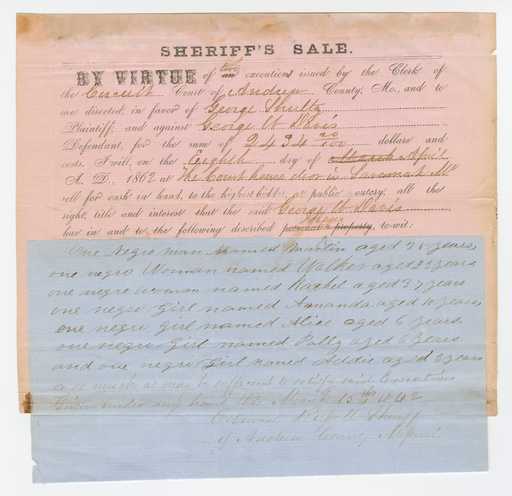 SHERIFF'S SALE.
BY VIRTUE of two an executions issued by the Clerk of
the Circuit Court of Andrew County, Mo., and to
me directed, in favor of George Shultz
Plaintiff, and against George W Davis
Defendant, for the sum of 2434 dollars and
costs, I will, on the Eighth day of March April
A. D., 1862 at the Court house door in Savannah Mo
sell for cash in hand, to the highest bidder, at public outcry, all the
right, title and interest that the said George W Davis
has in and to the following described personal property, to-wit:
One Negro man Named Martin aged 28 years
one negro Woman named Walker aged 32 years
one negro woman named Rachel aged 27 years
one negro Girl named Amanda aged 10 years
one negro girl named Alice aged 6 years
one negro Girl named Patty aged 6 years
and one negro Girl named Addie aged 2 years
or so much as may be sufficient to satisfy said Executions
Given under my hand this March 15th 1862
Sheriff
of Andrew County Missouri